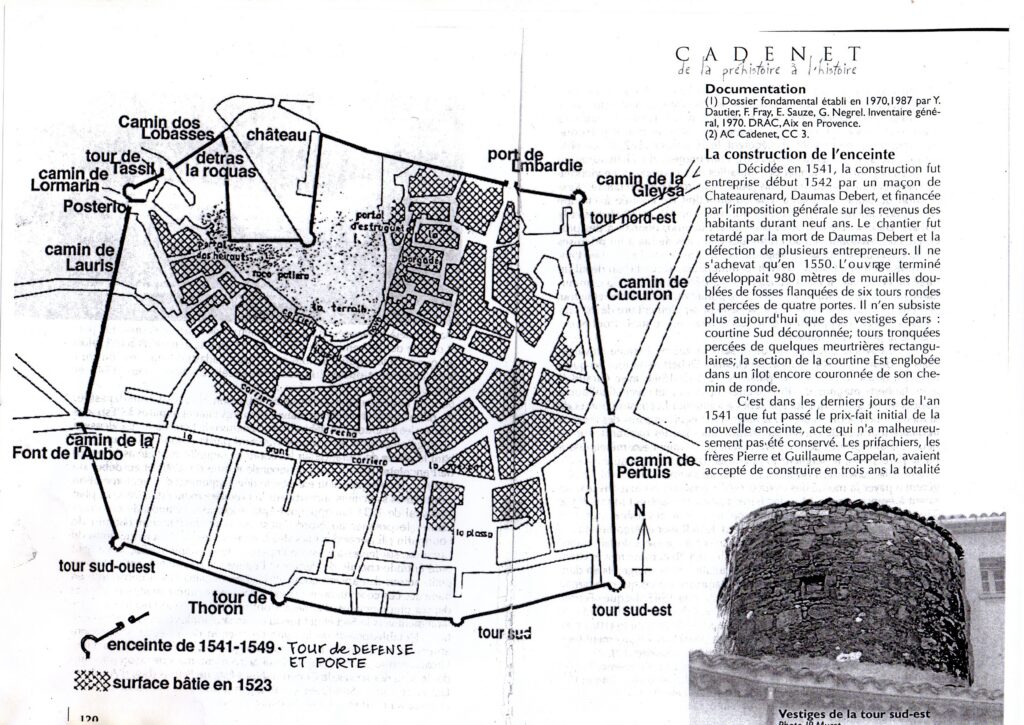 CADENET
de la préhistoire à l'histoire
Documentation
(1) Dossier fondamental établi en 1970,1987 par Y.
Dautier, F. Fray, E. Sauze, G. Negrel. Inventaire géné-
ral, 1970. DRAC, Aix en Provence.
(2) AC Cadenet, CC 3.
La construction de l'enceinte
Décidée en 1541, la construction fut
entreprise début 1542 par un maçon de
Chateaurenard, Daumas Debert, et financée
par l'imposition générale sur les revenus des
habitants durant neuf ans. Le chantier fut
retardé par la mort de Daumas Debert et la
défection de plusieurs entrepreneurs. Il ne
s'achevat qu'en 1550. L'ouvrage terminé
développait 980 mètres de murailles dou-
blées de fosses flanquées de six tours rondes
et percées de quatre portes. Il n'en subsiste
plus aujourd'hui que des vestiges épars :
courtine Sud découronnée; tours tronquées
percées de quelques meurtrières rectangu-
laires; la section de la courtine Est englobée
dans un îlot encore couronnée de son che-
min de ronde.
C'est dans les derniers jours de l'an
1541 que fut passé le prix-fait initial de la
nouvelle enceinte, acte qui n'a malheureu-
sement pas été conservé. Les prifachiers, les
frères Pierre et Guillaume Cappelan, avaient
accepté de construire en trois ans la totalité
Camin dos
Lobasses
château
tour de
Tassil
detras
la roquas
port de
Lmbardie
camin de
Lormarin
Posterlo
camin de la
Gleysa
tour nord-est
portal
d'estruguet
portal
des heirauts
bergade
camin de
Lauris
roco potiero
camin de
Cucuron
la terralh
corriero
drecho
camin de la
Font de l'Aubo
lo grant
corriero
camin de
Pertuis
N
la plasso
tour sud-ouest
tour de
Thoron
tour sud
tour sud-est
enceinte de 1541-1549. TOUR de DEFENSE
ET PORTE
surface bâtie en 1523
120
Vestiges de la tour sud-est